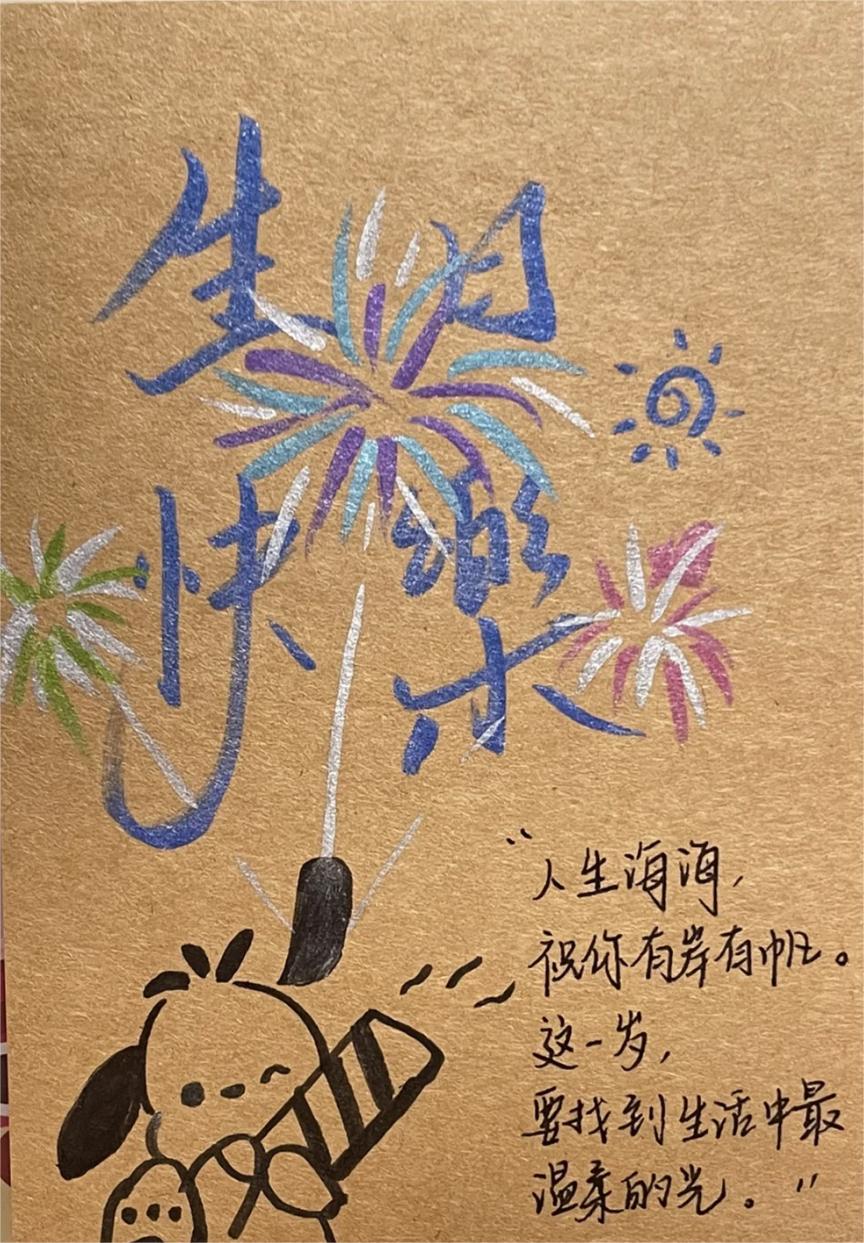 生日
快樂
“人生海海，
祝你有岸有帆。
这一岁，
要找到生活中最
温柔的光。”